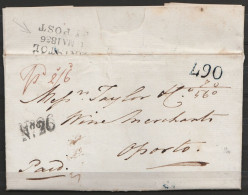 POST
P. 2/6
067
560
Messrs Taylor & Co
Wine Merchants
No. 26
Oporto
Paid